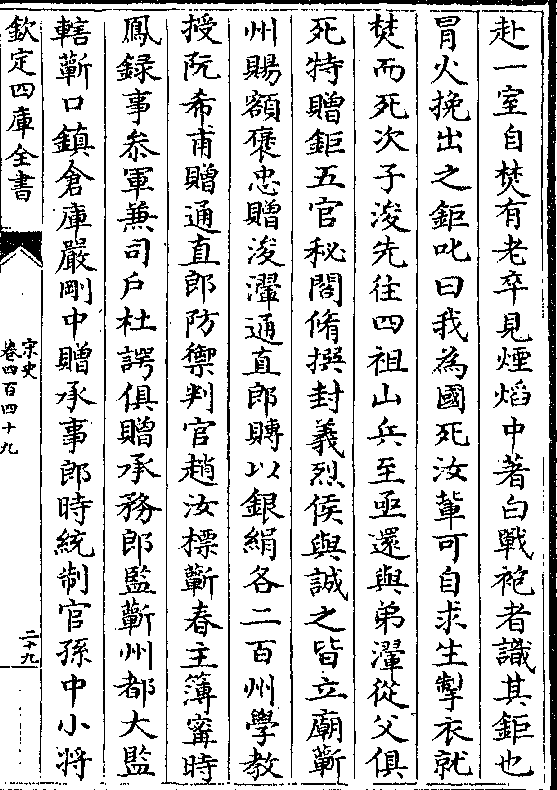 赴一室自焚有老卒見煙焰中著白戰袍者識其鉅也
冐火挽出之鉅叱曰我為國死汝軰可自求生掣衣就
焚而死次子浚先往四祖山兵至亟還與弟濢從父俱
死特贈鉅五官秘閣脩撰封義烈侯與誠之皆立廟蘄
州賜額褒忠贈浚濢通直郎賻以銀絹各二百州學教
授阮希甫贈通直郎防禦判官趙汝標蘄春主簿寗時
鳳録事叅軍兼司户杜諤俱贈承務郎監蘄州都大監
轄蘄口鎮倉庫嚴剛中贈承事郎時統制官孫中小將
欽定四庫全書
宋史
卷四百四十九
二十九